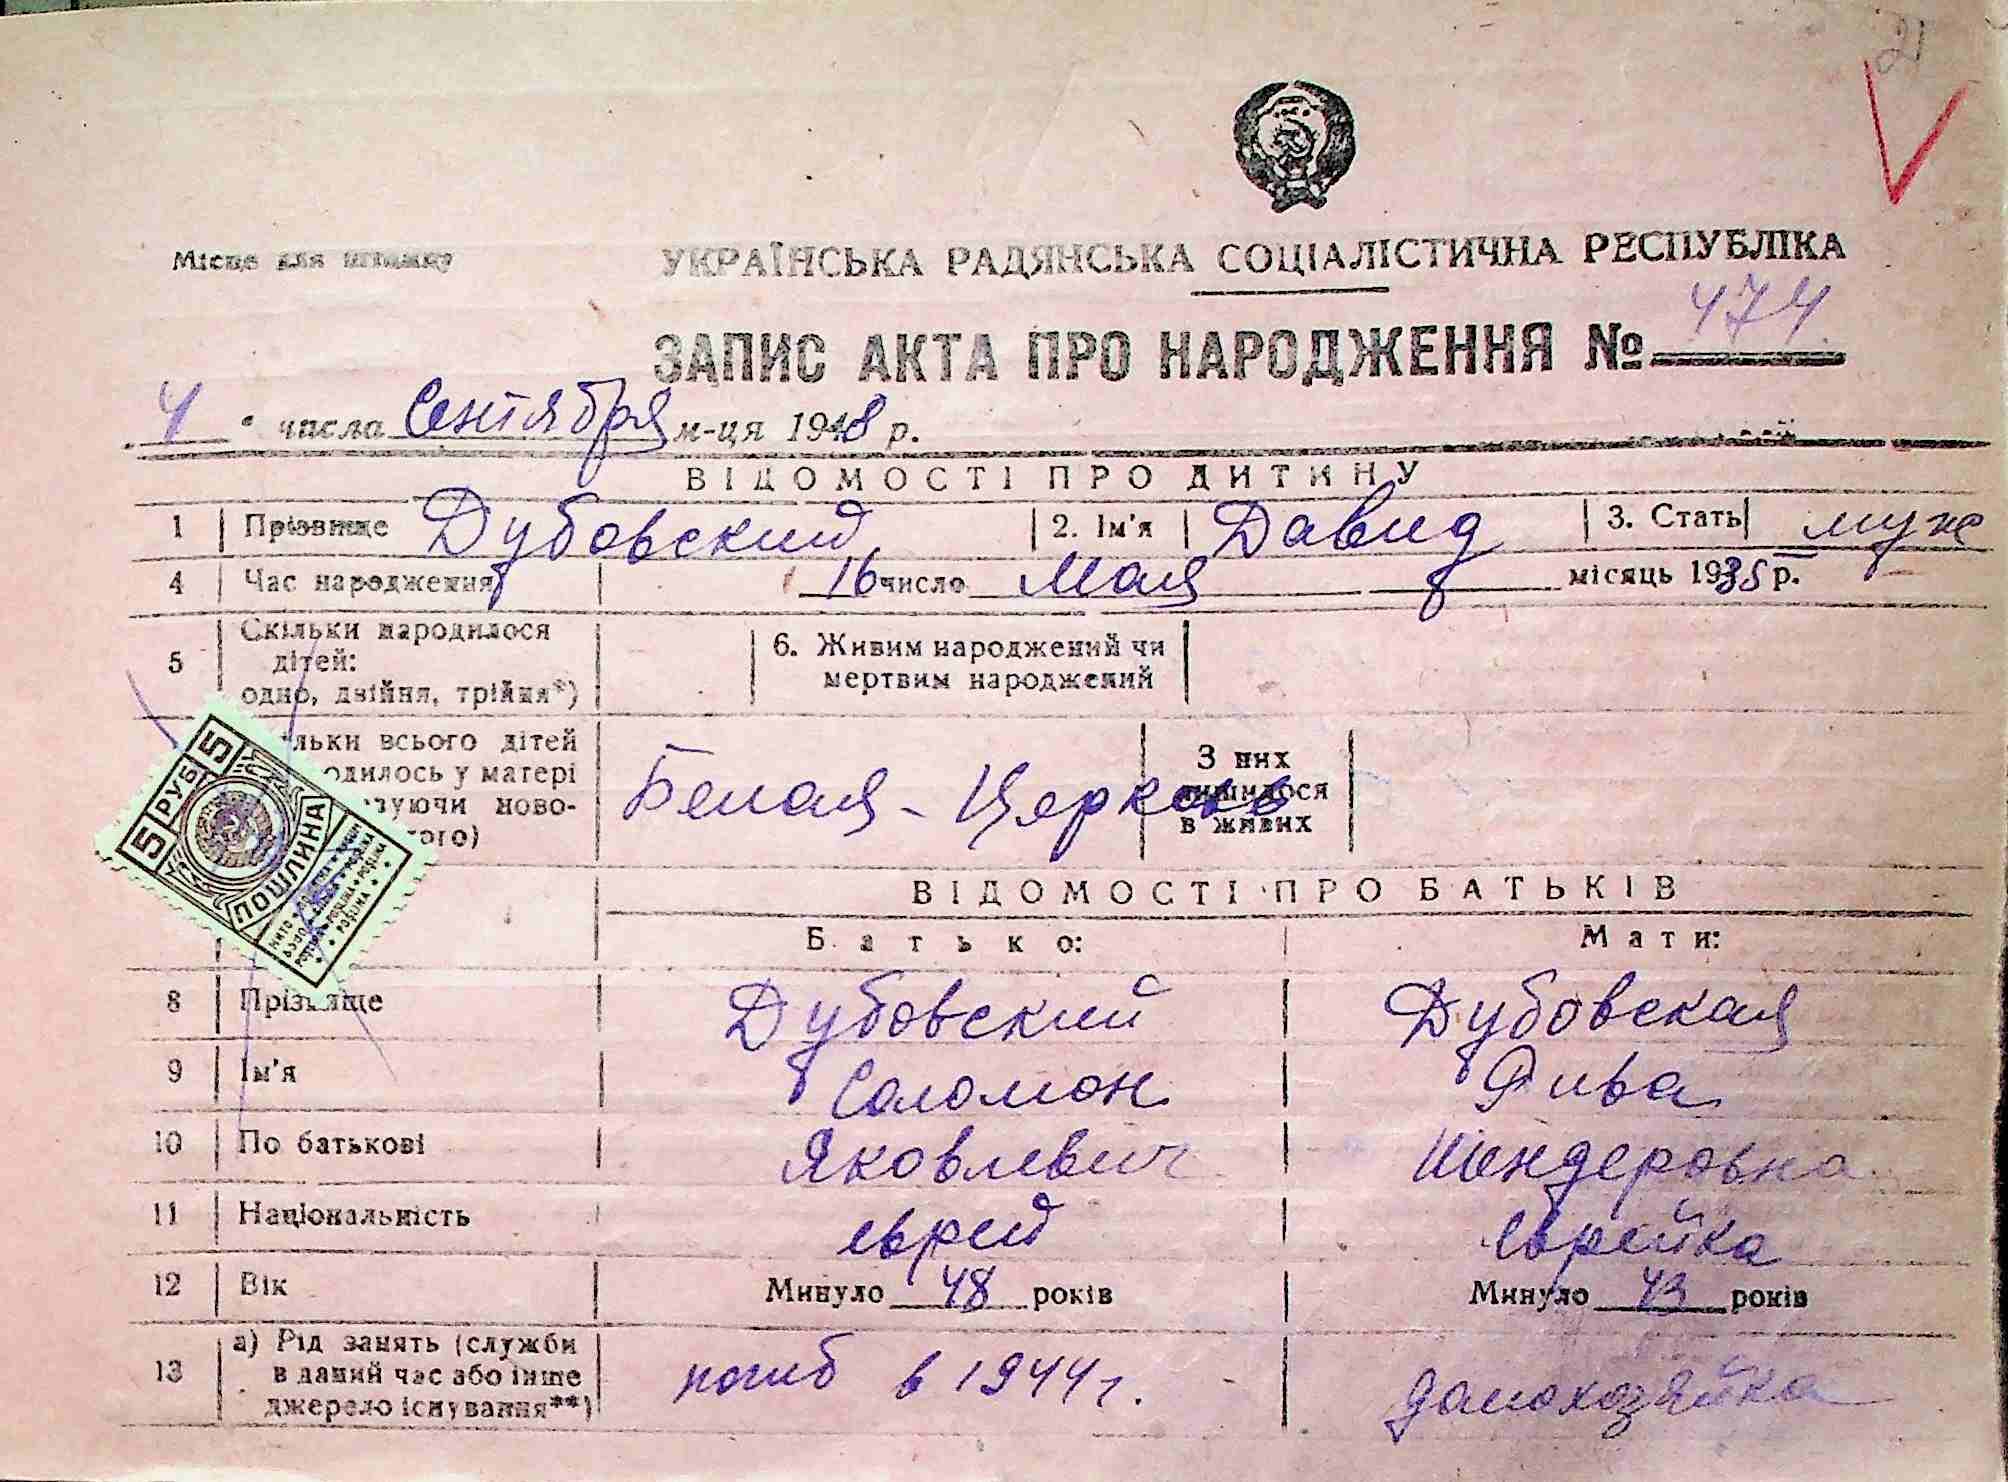 21
Місце для штампу
УКРАЇНСЬКА РАДЯНСЬКА СОЦІАЛІСТИЧНА РЕСПУБЛІКА
ЗАПИС АКТА ПРО НАРОДЖЕННЯ № 474
4 числа Сентября м-ця 1948 р.
ВІДОМОСТІ ПРО ДИТИНУ
1 Прізвище Дубовский 2. Ім'я Давид 3. Стать муж
4 Час народження 16 число Мая місяць 1935 р.
5 Скільки народилося дітей: одно, двійня, трійня*) 6. Живим народжений чи мертвим народжений
льки всього дітей
одилось у матері
зуючи ново-
ого)
Белая-Церковь
З них лишилося в живих
5 РУБ 5
ПОШЛИНА
ВІДОМОСТІ ПРО БАТЬКІВ
Батько: Мати:
8 Прізвище Дубовский Дубовская
9 Ім'я Соломон Рива
10 По батькові Яковлевич Шендеровна
11 Національність еврей еврейка
12 Вік Минуло 48 років Минуло 43 років
13 а) Рід занять (служби в даний час або інше джерело існування**) погиб в 1944 г. домохозяйка